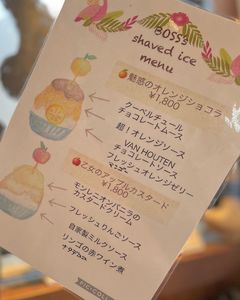 BOSS's
shaved ice
menu
魅惑のオレンジショコラ
¥1,800
クーベルチュール
チョコレートムース
超！オレンジソース
VAN HOUTEN
チョコレートソース
フレッシュオレンジゼリー
乙女のアップルカスタード
¥1,800
モンレニオンバニラの
カスタードクリーム
フレッシュりんごソース
自家製ミルクソース
リンゴの赤ワイン煮